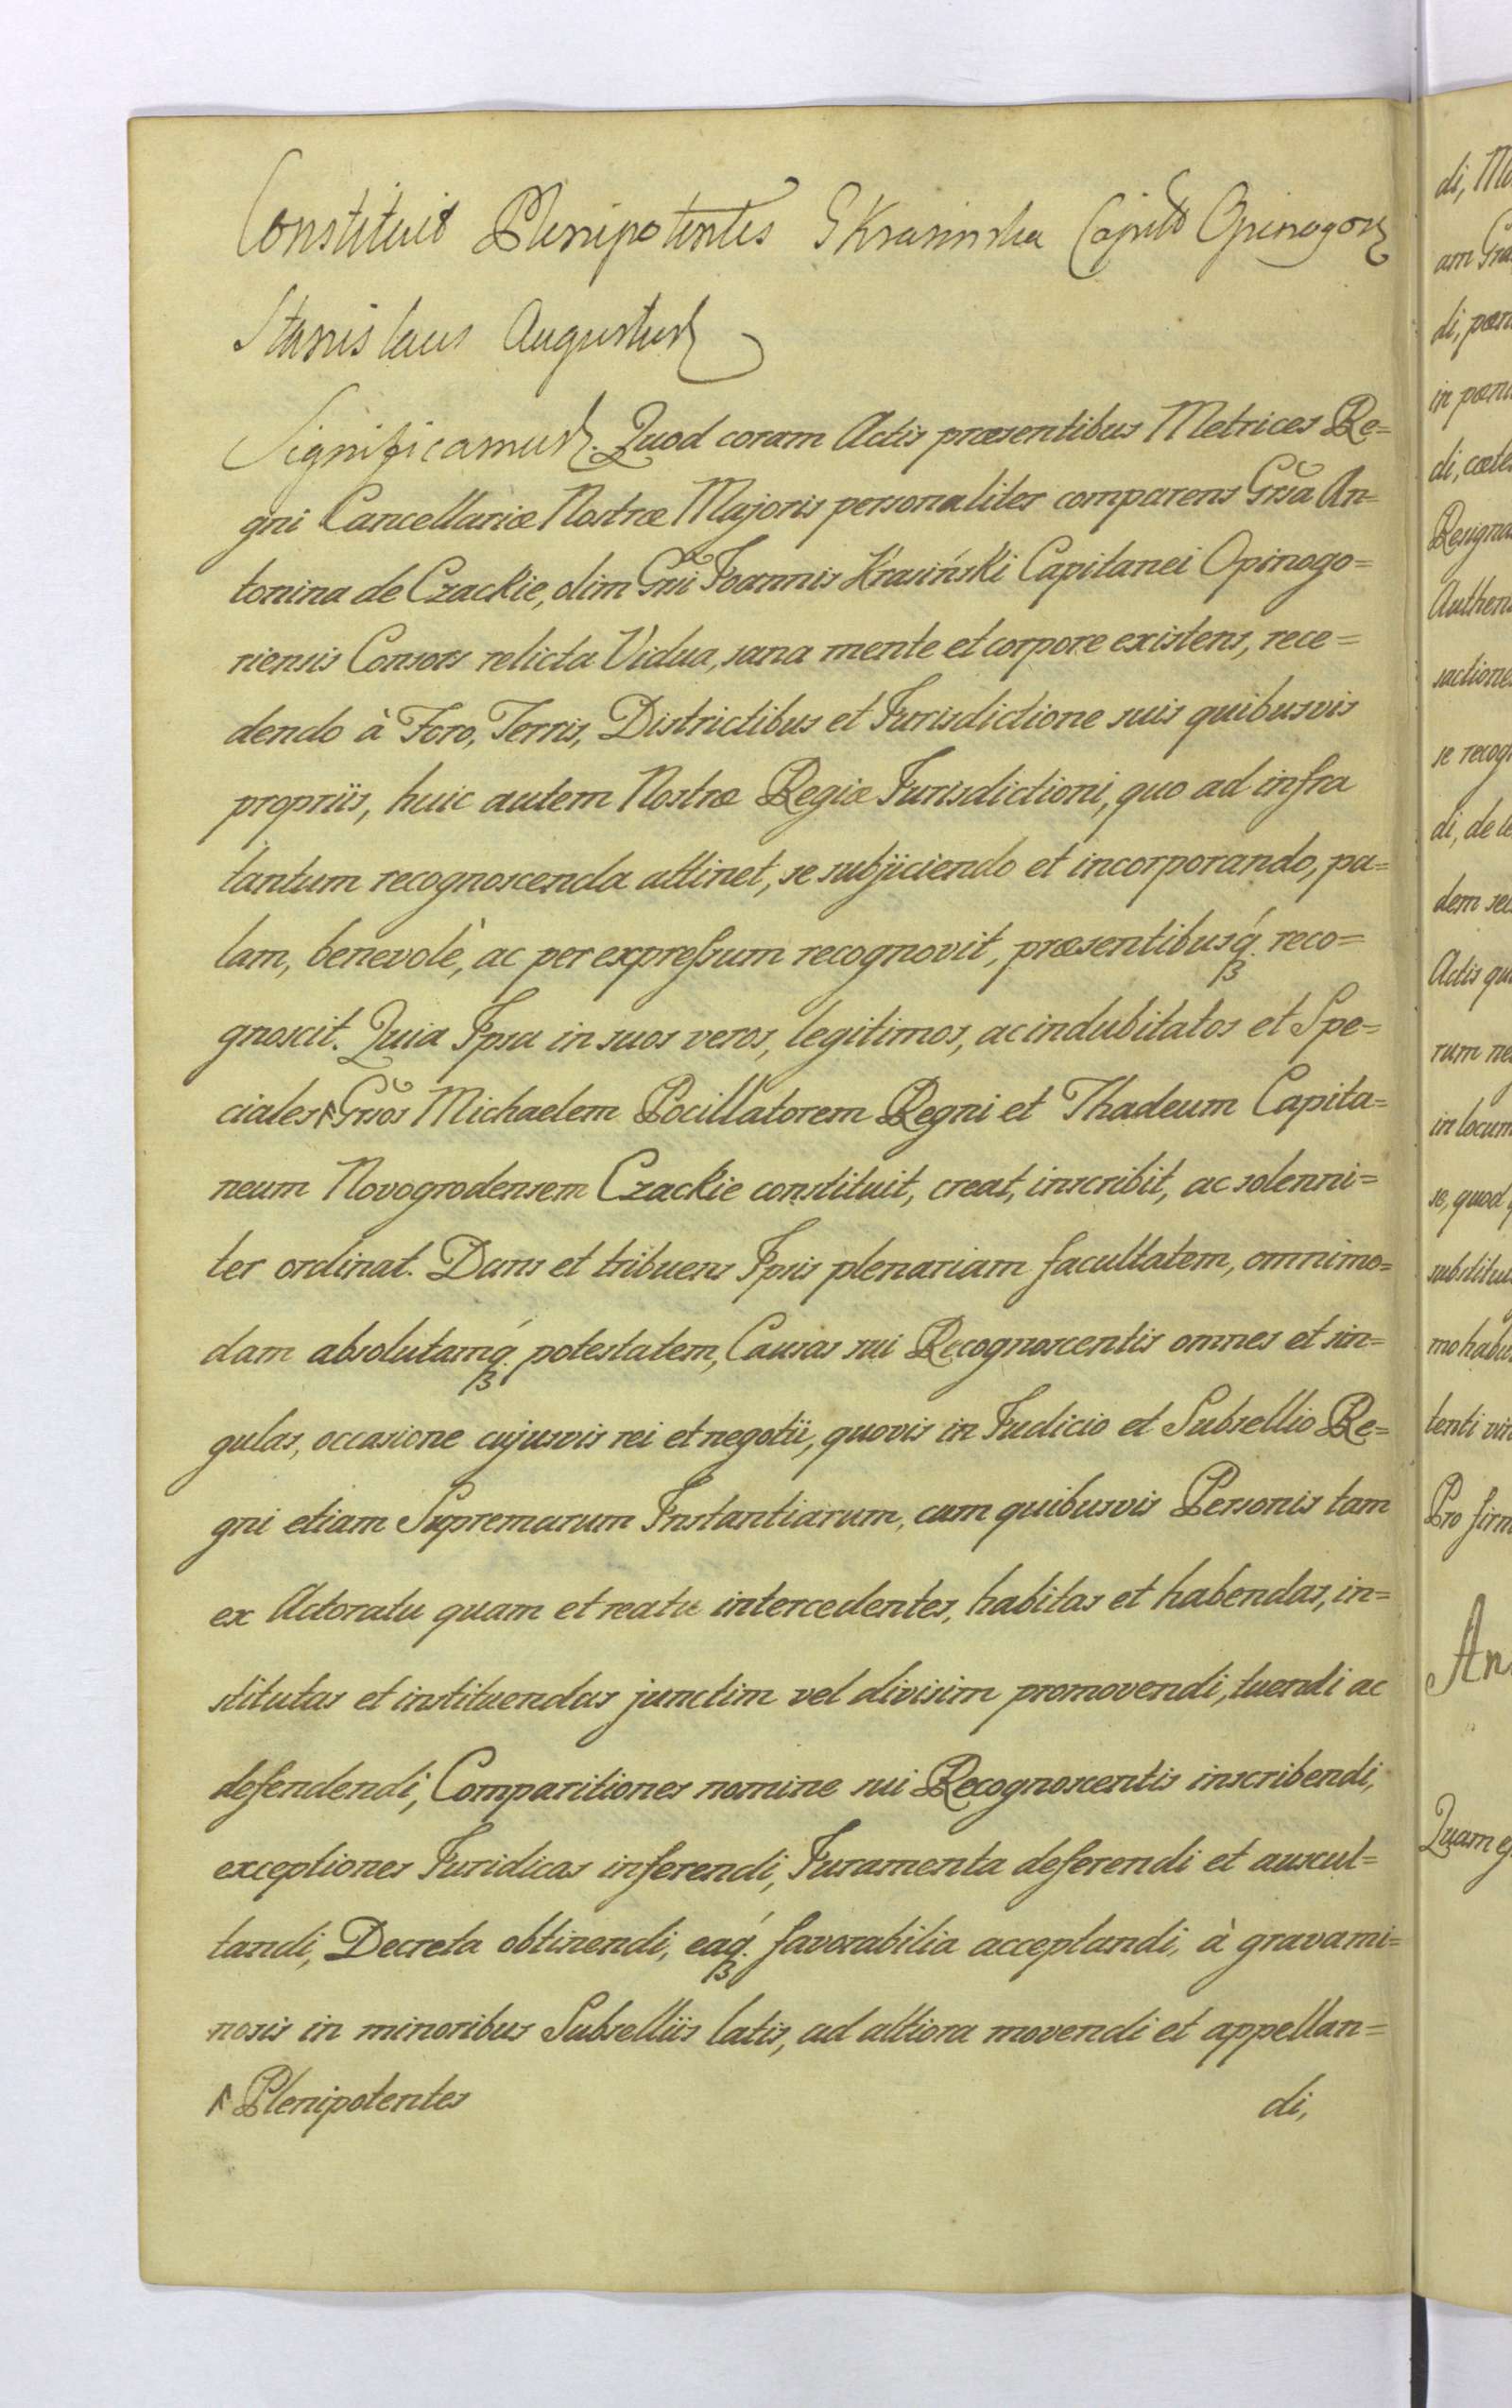 Constituit Plenipotentes G Krasinska Capit Opinogor
Stanislaus Augustus
Significamus. Quod coram Actis præsentibus Metrices Re=
gni Cancellariæ Nostræ Majoris personaliter comparens Gnsa An=
tonina de Czackie, olim Gnsi Joannis Krasiński Capitanei Opinogo=
riensis Consors relicta Vidua, sana mente et corpore existens, rece=
dendo à Foro, Terris, Districtibus et Jurisdictione suis quibusvis
propriis, huic autem Nostræ Regiæ Jurisdictioni, quo ad infra
tantum recognoscenda attinet, se subjiciendo et incorporando, pa=
lam, benevolè, ac per expreßum recognovit, præsentibusq́. reco=
gnoscit. Quia Ipsa in suos veros, legitimos, ac indubitatos et Spe=
ciales ↑ Gnsos Michaelem Pocillatorem Regni et Thadeum Capita=
neum Novogrodensem Czackie constituit, creat, inscribit, ac solenni=
ter ordinat. Dans et tribuens Ipsis plenariam facultatem, omnimo=
dam absolutamq́. potestatem, Causas sui Recognoscentis omnes et sin=
gulas, occasione cujusvis rei et negotii, quovis in Judicio et Subsellio Re=
gni etiam Supremarum Instantiarum, cum quibusvis Personis tam
ex Actoratu quam et reatu intercedentes, habitas et habendas, in=
stitutas et instituendas junctim vel divisim promovendi, tuendi ac
defendendi, Comparitiones nomine sui Recognoscentis inscribendi,
exceptiones Juridicas inferendi, Juramenta deferendi et auscul=
tandi, Decreta obtinendi, eaq́. favorabilia acceptandi, à gravami=
nosis in minoribus Subselliis latis, ad altiora movendi et appellan=
↑ Plenipotentes
di,
di, Mo
am Gra
di, pœn
in pœn
di, cæte
Resigna
Authen
sactione
se recog
di, de
dem
Actis qu
rum ne
in locum
se, quod
substitu
mo habi
tenti
Pro firm
An
Quam